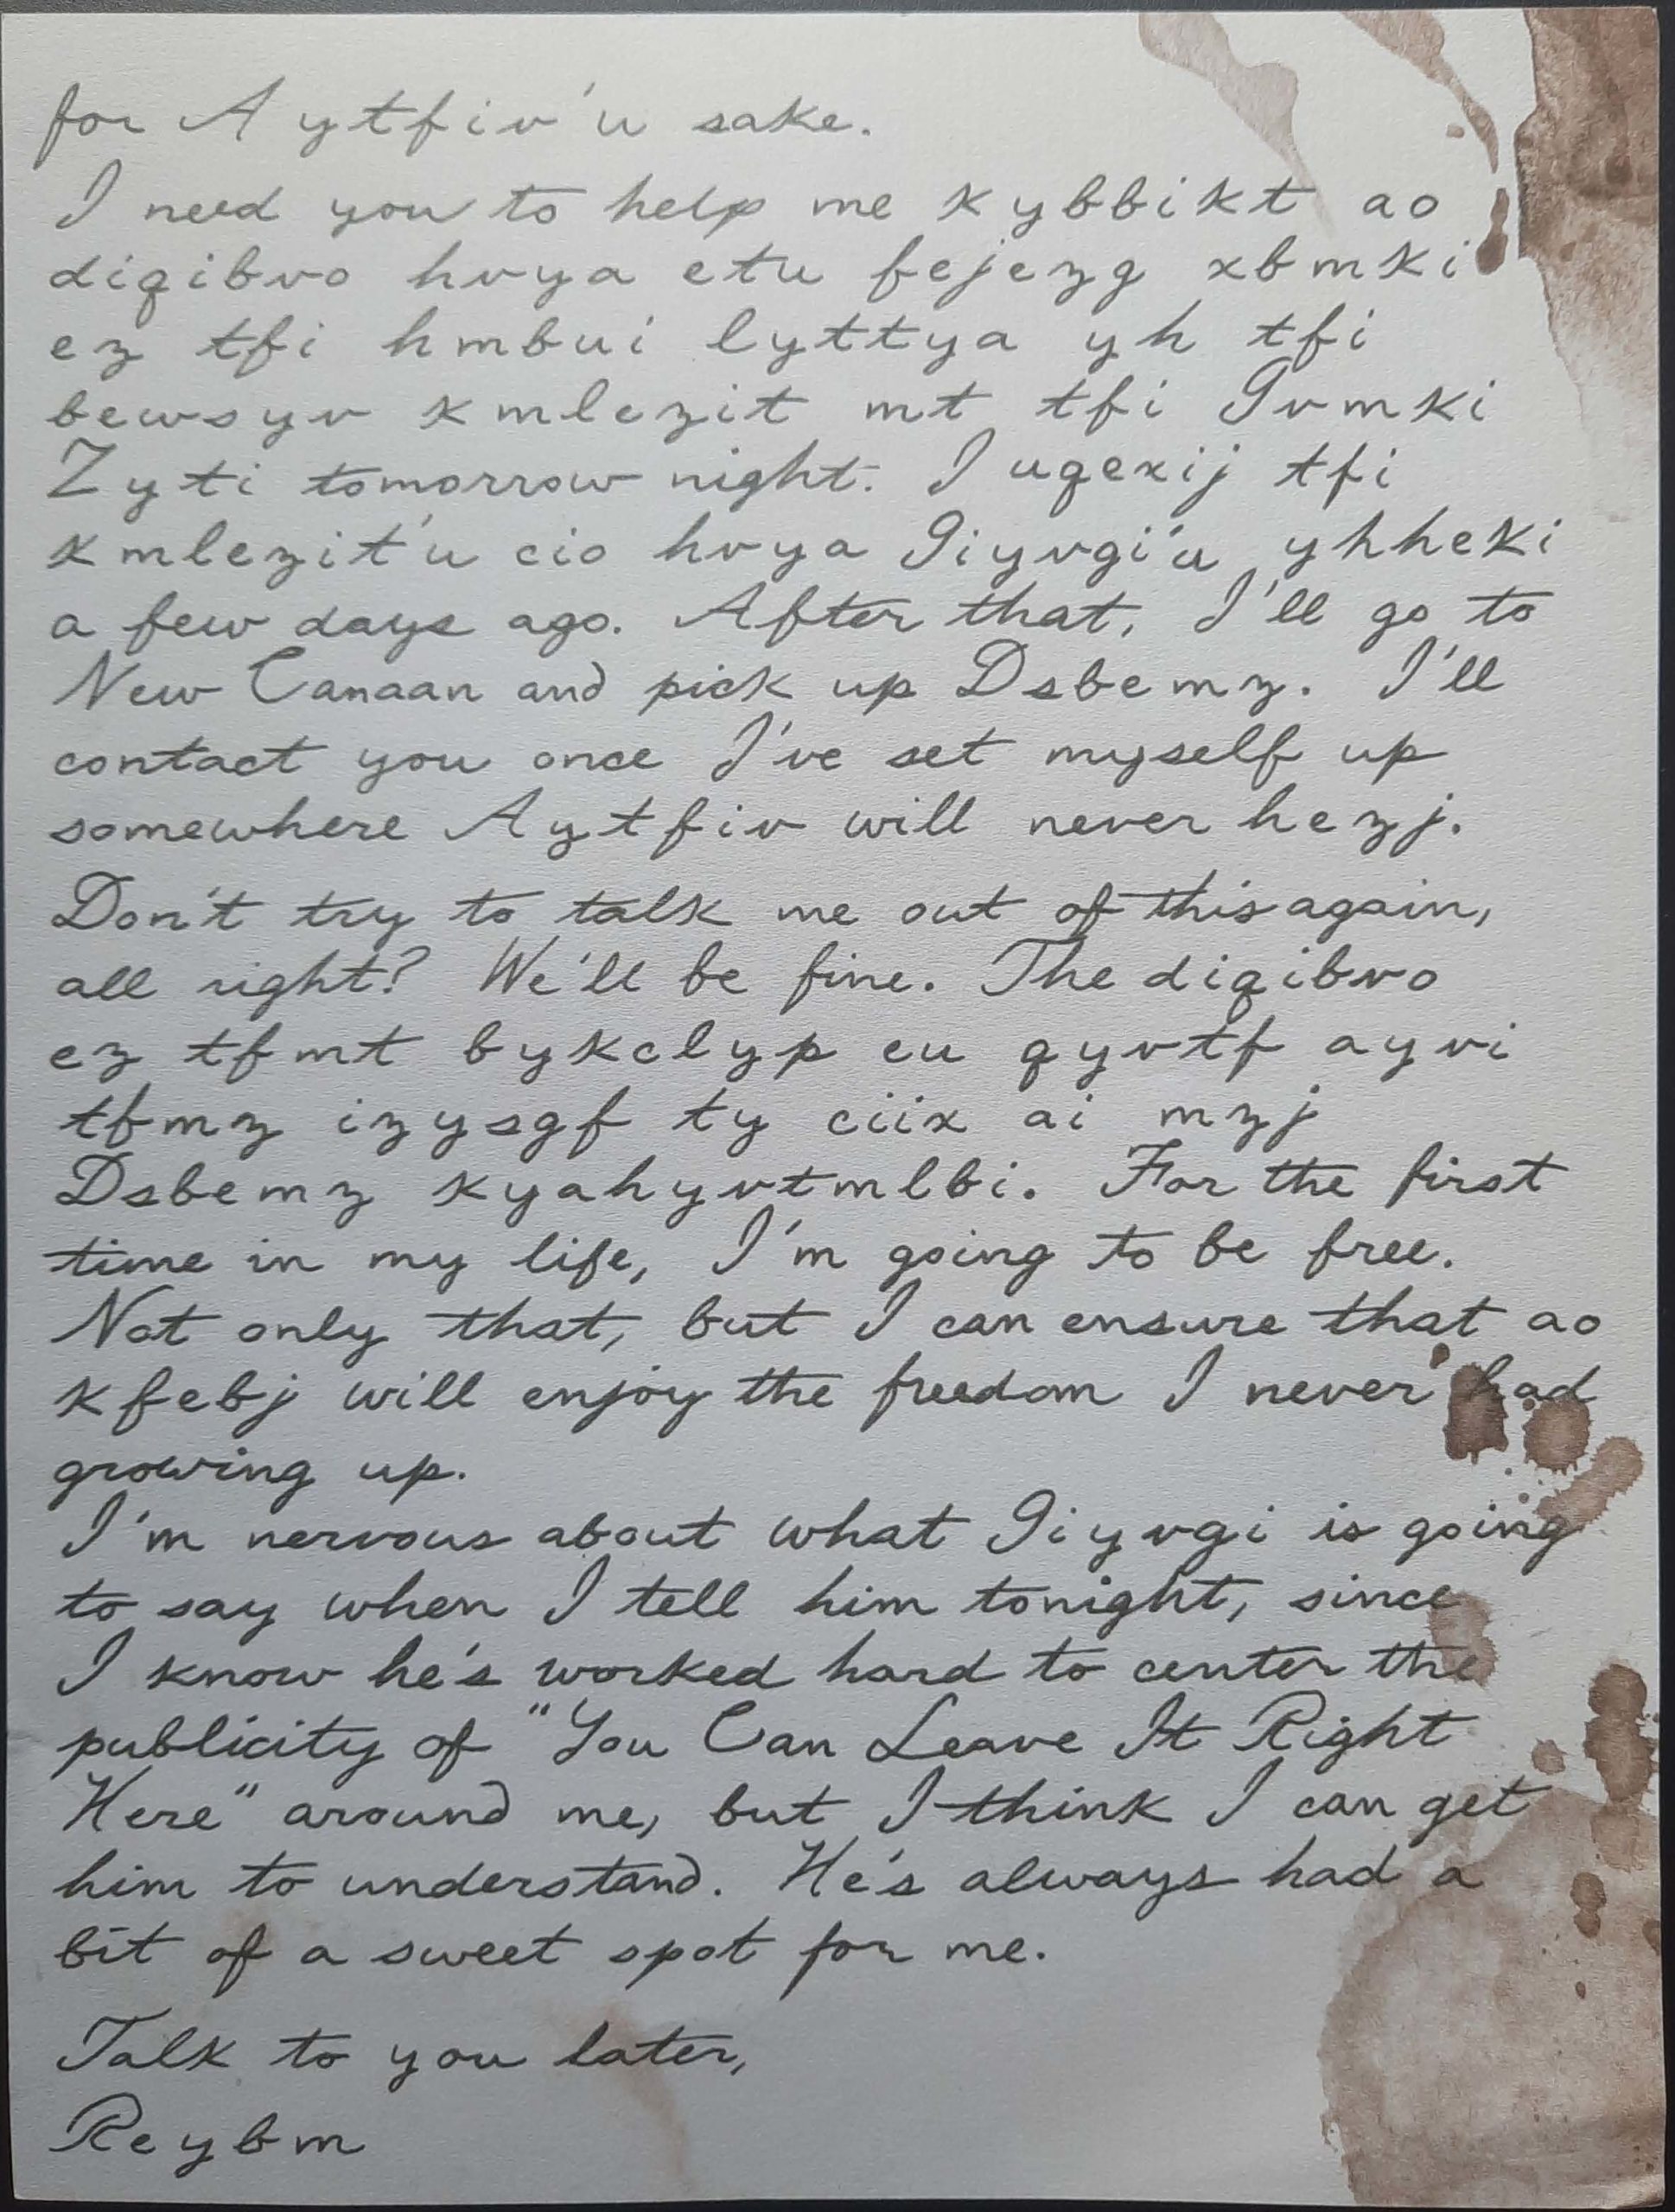 for Aytfiv'u sake.
I need you to help me kybbikt ao
diqibvo hvya etu fejezg xbmki
ez tfi hmbui lyttya yh tfi
bewsyv kmlezit mt tfi Gvmki
Zyti tomorrow night. I uqexij tfi
kmlezit'u cio hvya Giyvgi'u yhheki
a few days ago. After that, I'll go to
New Canaan and pick up Dsbemz. I'll
contact you once I've set myself up
somewhere Aytfiv will never hezj.
Don't try to talk me out of this again,
all right? We'll be fine. The diqibvo
ez tfmt bykclyp eu qyvtf ayvi
tfmz izysgf ty ciix ai mzj
Dsbemz kyahyvtmlbi. For the first
time in my life, I'm going to be free.
Not only that, but I can ensure that ao
kfebj will enjoy the freedom I never had
growing up.
I'm nervous about what Giyvgi is going
to say when I tell him tonight, since
I know he's worked hard to center the
publicity of "You Can Leave It Right
Here" around me, but I think I can get
him to understand. He's always had a
bit of a sweet spot for me.
Talk to you later,
Reybm